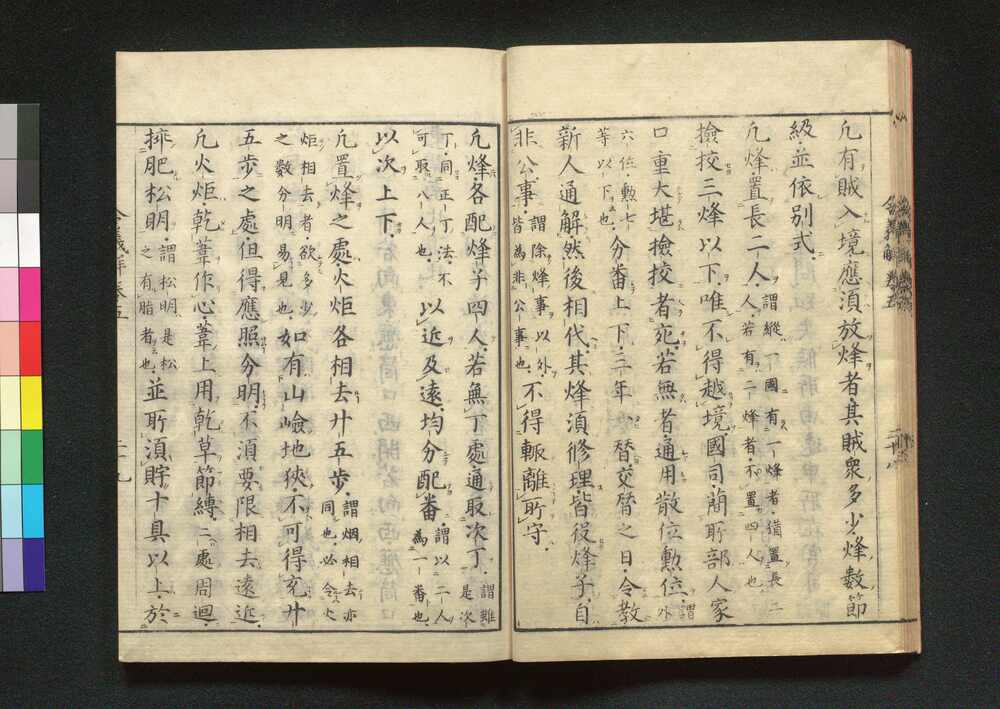 凢有賊入境應湏放烽者其賊衆多少烽數節
級並依別式
凢烽置長二人謂縱一國有一烽者猶置長二人若有二烽者不置四人也
撿挍三烽以下唯不得越境國司簡所部人家
口重大堪撿挍者宛若無者通用散位勲位謂外
六位勲七等以下也分番上下三年一替交替之日令教
新人通解然後相代其烽湏修理皆役烽子自
非公事謂除烽事以外皆為非公事也不得輙離所守
凢烽各配烽子四人若無丁處通取次丁謂雖是次
丁同正丁法不可取八人也以近及遠均分配番謂以二人為一番也
以次上下
凢置烽之處火炬各相去廾五步謂烟相去亦同也必令火
炬相去者欲多少之數分明易見也如有山嶮地狹不可得充廾
五步之處但得應照分明不湏要限相去遠近
凢火炬乾葦作心葦上用乾草節縛二處周迴
挿肥松明謂松明是松之有脂者也並所湏貯十具以上於